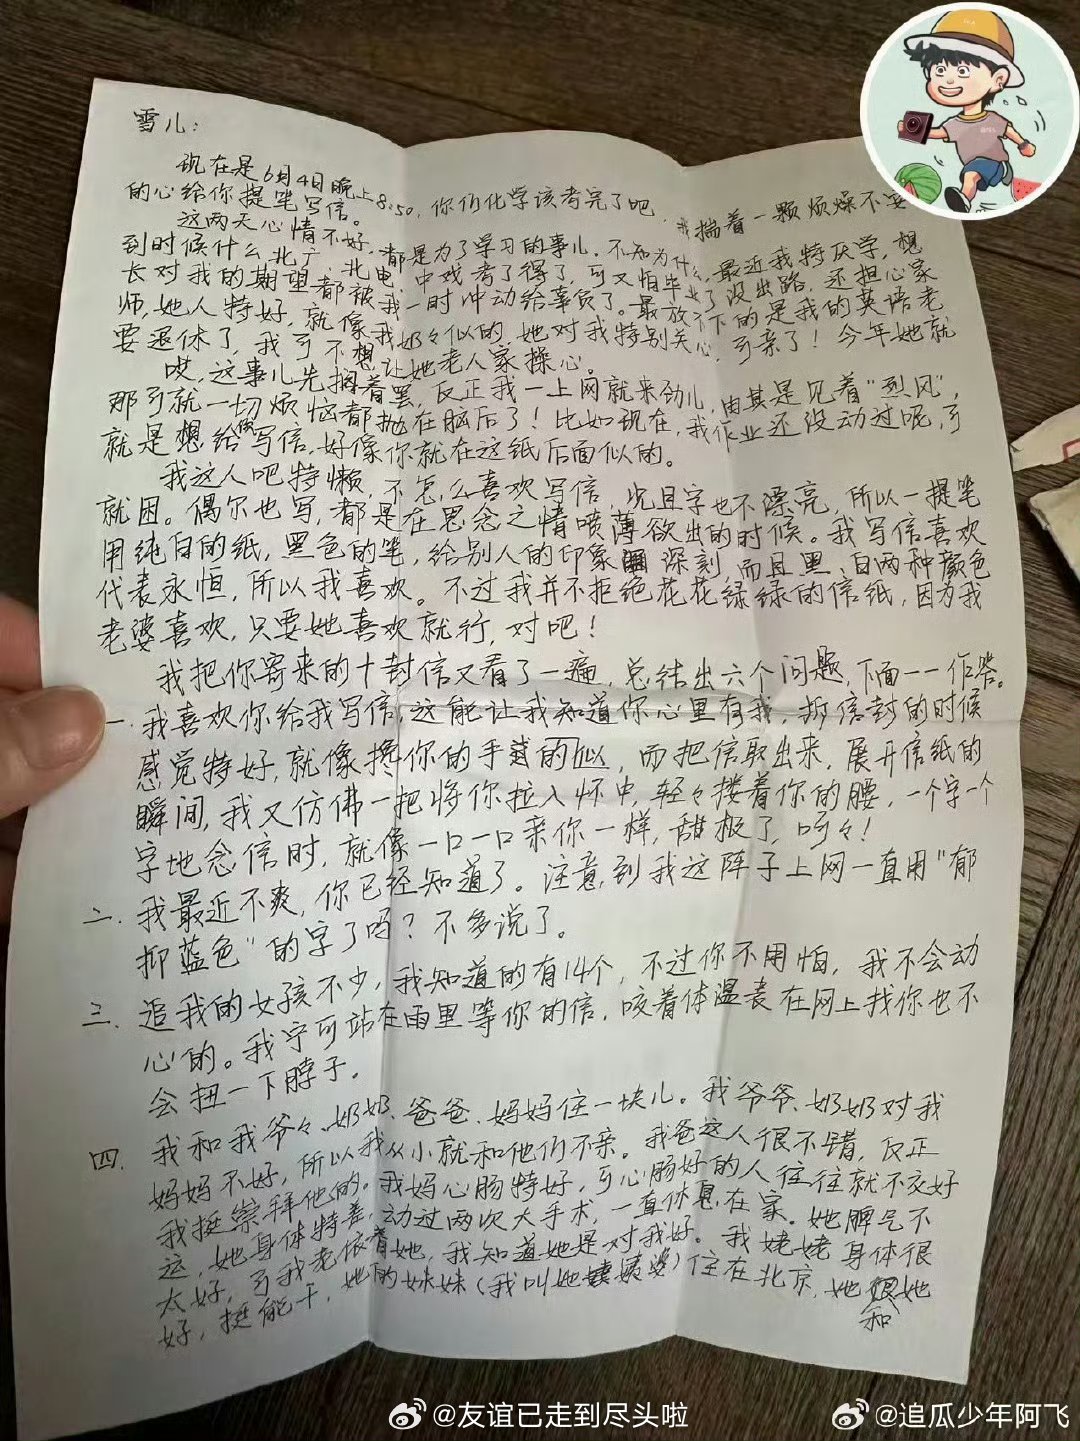 雪儿：
现在是6月4日晚上8:50，你们化学该考完了吧，我揣着一颗烦燥不安
的心给你提笔写信。
这两天心情不好，都是为了学习的事儿，不知为什么，最近我特厌学，想
到时候什么北广、北电、中戏考了得了，可又怕毕业了没出路，还担心家
长对我的期望都被我一时冲动给辜负了。最放不下的是我的英语老
师，她人特好，就像我奶々似的，她对我特别关心，可亲了！今年她就
要退休了，我可不想让她老人家操心。
哎，这事儿先搁着罢，反正我一上网就来劲儿，由其是见着“烈风”，
那可就一切烦恼都抛在脑后了！比如现在，我作业还没动过呢，可
就是想给你写信，好像你就在这纸后面似的。
我这人吧特懒，不怎么喜欢写信，况且字也不漂亮，所以一提笔
就困。偶尔也写，都是在思念之情喷薄欲出的时候。我写信喜欢
用纯白的纸，黑色的笔，给别人的印象深刻，而且黑、白两种颜色
代表永恒，所以我喜欢。不过我并不拒绝花花绿绿的信纸，因为我
老婆喜欢，只要她喜欢就行，对吧！
我把你寄来的十封信又看了一遍，总结出六个问题，下面一一作答。
一.我喜欢你给我写信，这能让我知道你心里有我，拆信封的时候
感觉特好，就像搀你的手似的，而把信取出来，展开信纸的
瞬间，我又仿佛一把将你拉入怀中，轻々搂着你的腰，一个字一个
字地念信时，就像一口一口亲你一样，甜极了，呵々！
二.我最近不爽，你已经知道了。注意到我这阵子上网一直用“郁
抑蓝色”的字了吗？不多说了。
三.追我的女孩不少，我知道的有14个，不过你不用怕，我不会动
心的。我宁可站在雨里等你的信，咬着体温表在网上找你也不
会扭一下脖子。
四.我和我爷々、奶奶、爸爸、妈妈住一块儿。我爷爷、奶奶对我
妈妈不好，所以我从小就和他们不亲。我爸这人很不错，反正
我挺崇拜他的。我妈心肠特好，可心肠好的人往往就不交好
运，她身体特差，动过两次大手术，一直休息在家。她脾气不
太好，可我老依着她，我知道她是对我好。我姥姥身体很
好，挺能干，她的妹妹（我叫她姨婆）住在北京，她和她
@友谊已走到尽头啦
@追瓜少年阿飞